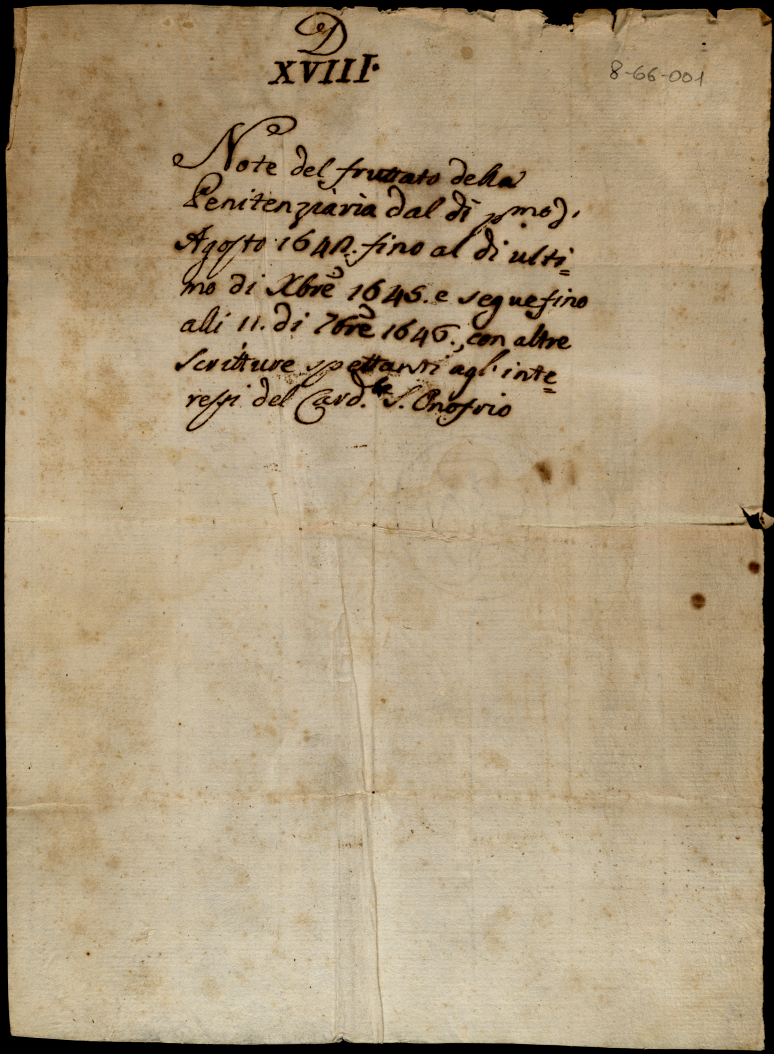 D
XVIII.
8-66-001
Note del fruttato della
Penitenziaria dal di pmo di
Agosto fino al di ulti=
mo di Xbre 1645. e segue fino
alli 11. di 7bre 1646., con altre
scritture spettanti agl'inte=
ressi del Card.le S. Onofrio